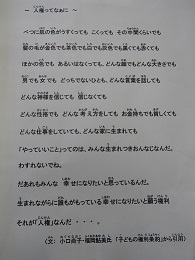 ～ 人権ってなぁに ～
べつに肌の色がうすくっても こくっても その中間くらいでも
髪の毛が金色でも茶色でも白でも灰色でも黒くても赤くても
ほかの色でも あるいはなくっても、どんな顔でもどんな大きさでも
男でも女でも どっちでないひとも、どんな言葉を話しても
どんな神様を信じても 信じなくても
どんな性格でも どんな考え方をしても お金持ちでも貧しくても
どんな仕事をしていても、どんな家に生まれても
「やっていいこと」ってのは、みんな生まれつきおんなじなんだ。
わすれないでね。
だあれもみんな 幸せになりたいと思っているんだ。
生まれながらに誰もがもっている幸せになりたいと願う権利
それが「人権」なんだ ・・・。
（文：小口尚子・福岡鮎美氏 「子どもの権利条約」から引用）